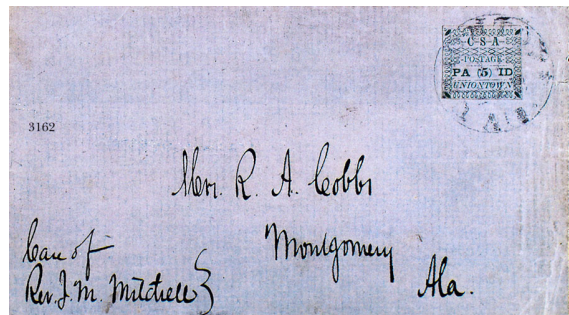 C·S·A
POSTAGE
PA (5) ID
UNIONTOWN
3162
Mrs. R. A. Cobbs
Montgomery
Ala.
Care of
Rev. J. M. Mitchell